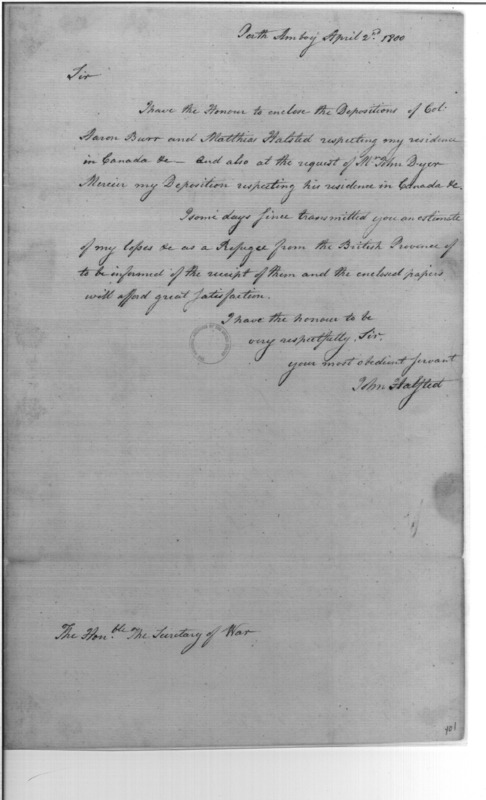 Perth Amboy April 2d. 1800
Sir
I have the Honour to enclose the Depositions of Col.
Aaron Burr and Matthias Halsted respecting my residence
in Canada &c — and also at the request of Mr. John Dyer
Mercier my Deposition respecting his residence in Canada &c.
I some days since transmitted you an estimate
of my losses &c as a Refugee from the British Province of
to be informed of the receipt of them and the enclosed papers
will afford great satisfaction.
I have the honour to be
very respectfully, Sir.
your most obedient servant
John Halsted
The Honble. The Secretary of War
401